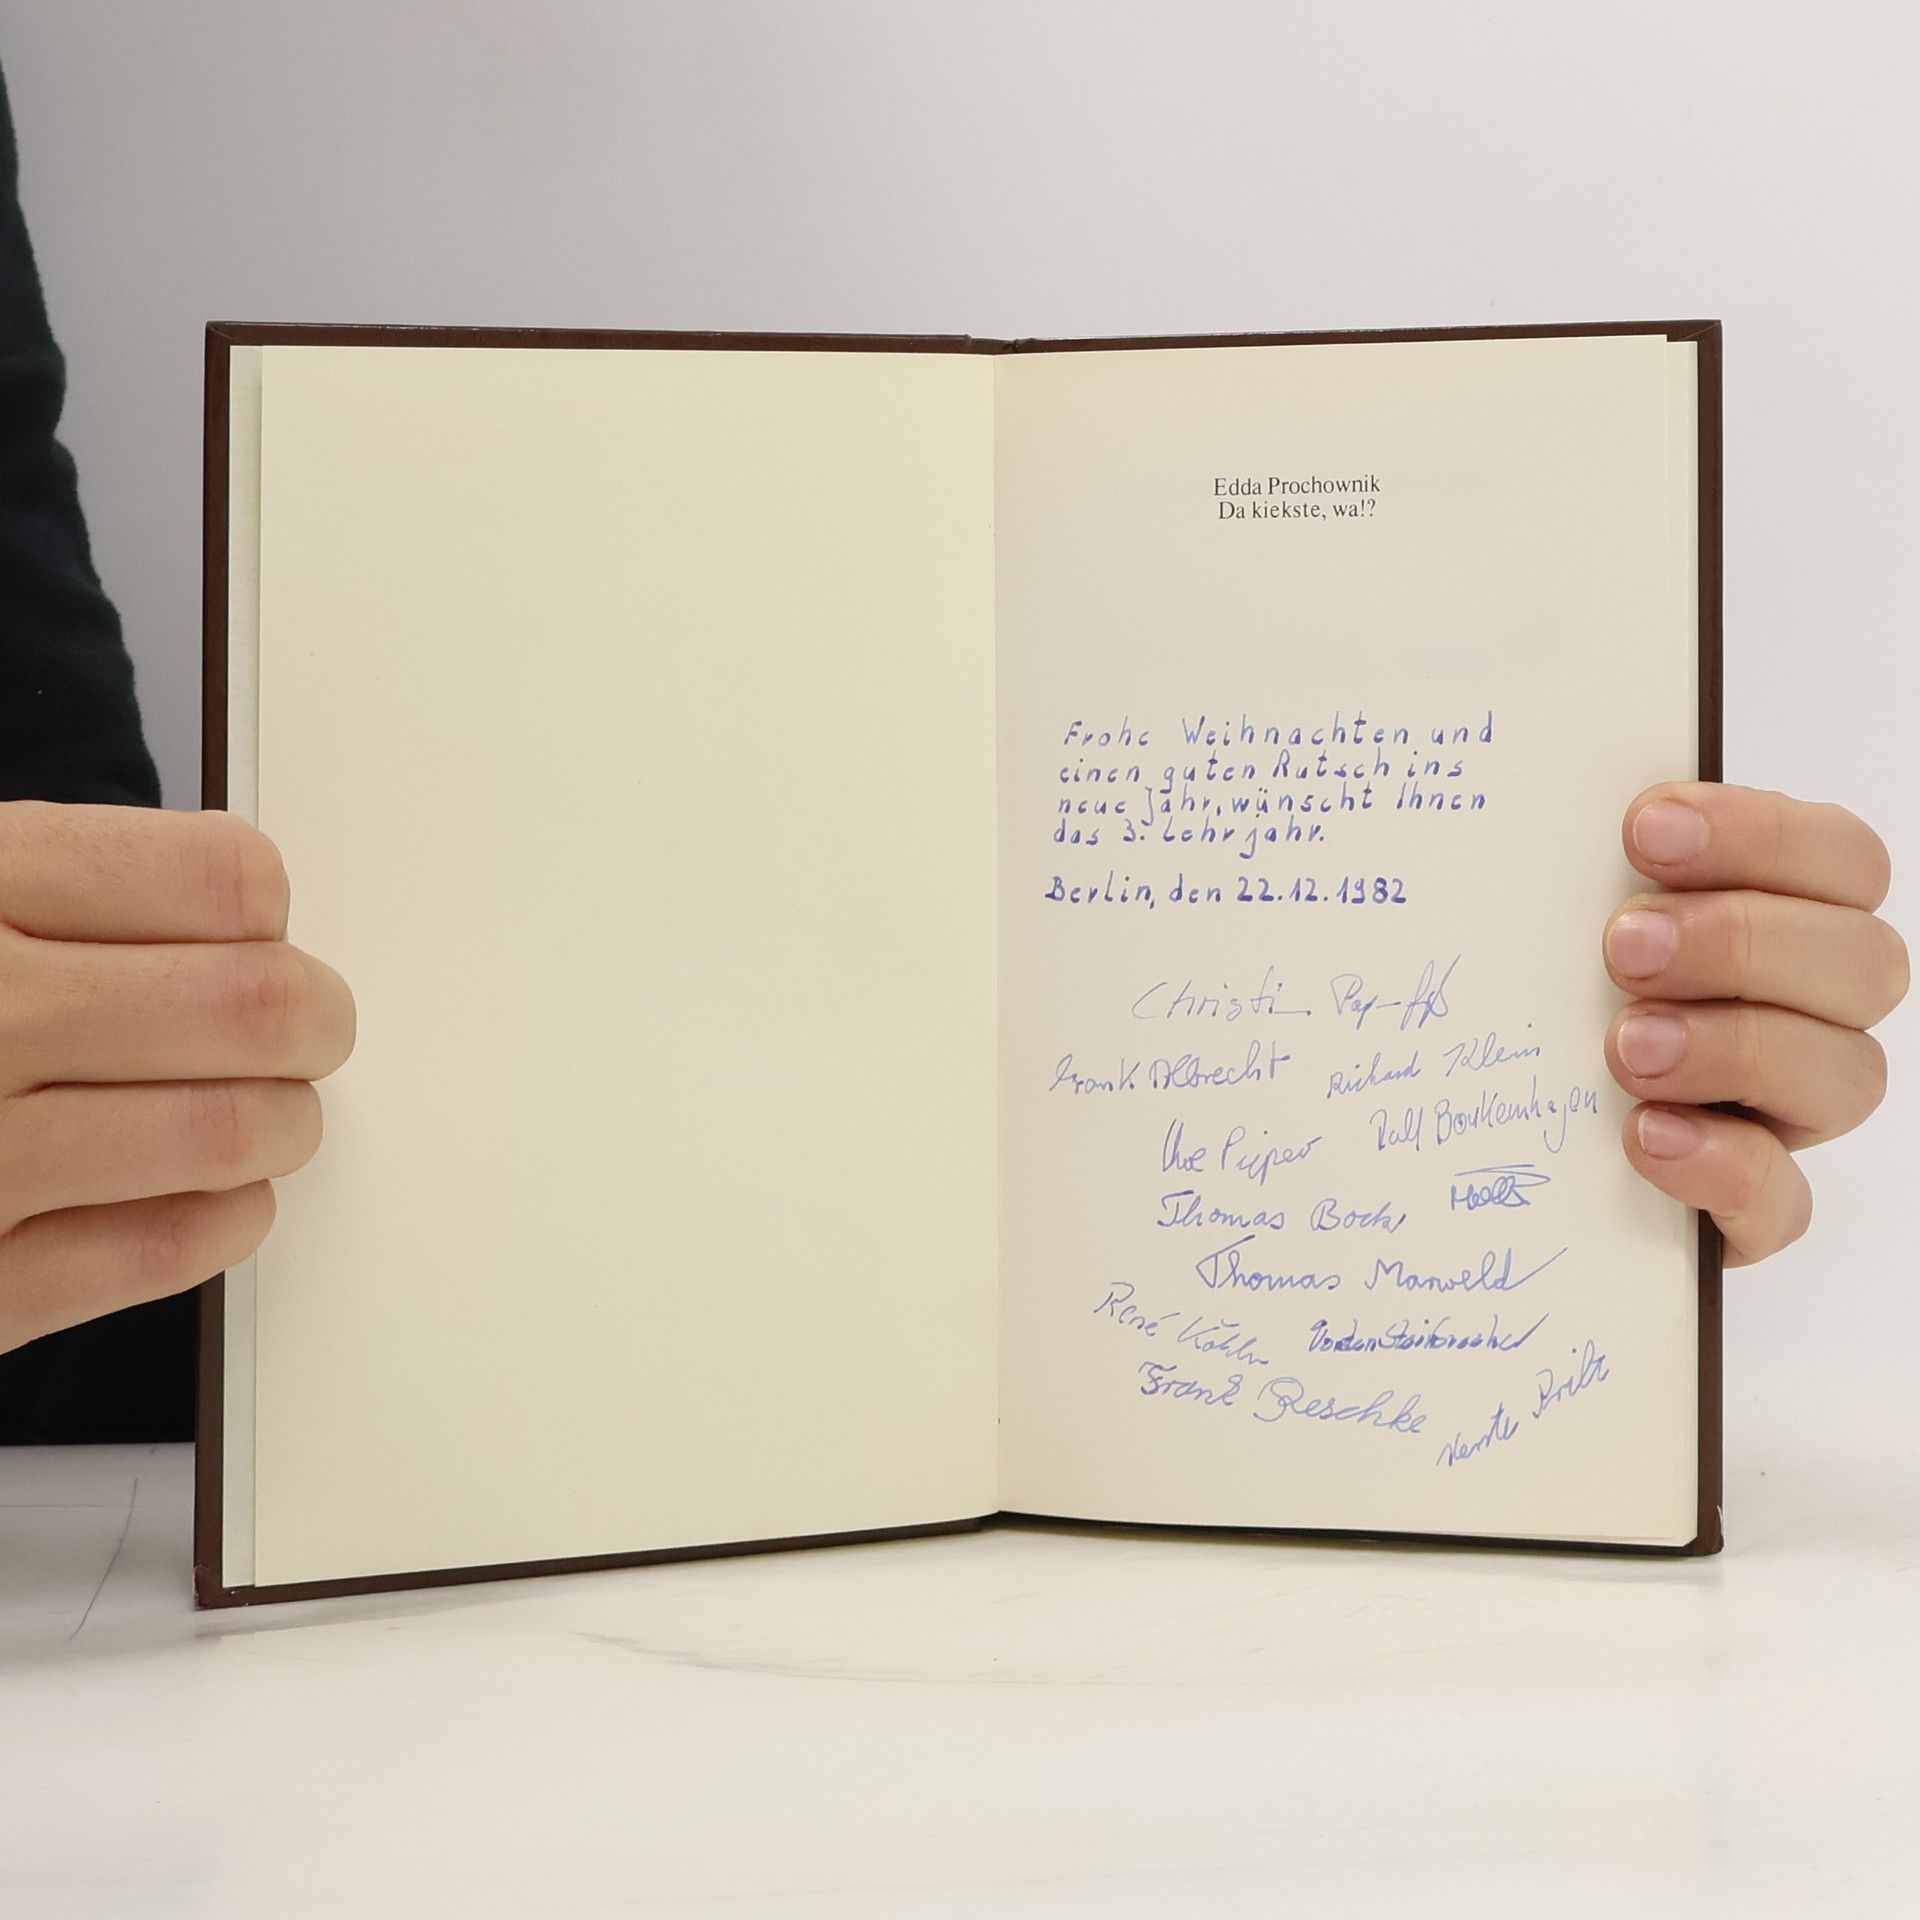 Edda Prochownik
Da kiekste, wa!?
Frohe Weihnachten und
einen guten Rutsch ins
neue Jahr, wünscht Ihnen
das 3. Lehrjahr.
Berlin, den 22.12.1982
Christin
Frank Albrecht
Richard Klein
Uwe Pieper
Ralf Borkenhagen
Thomas Bock
Thomas Marweld
René Köhler
Frank Reschke